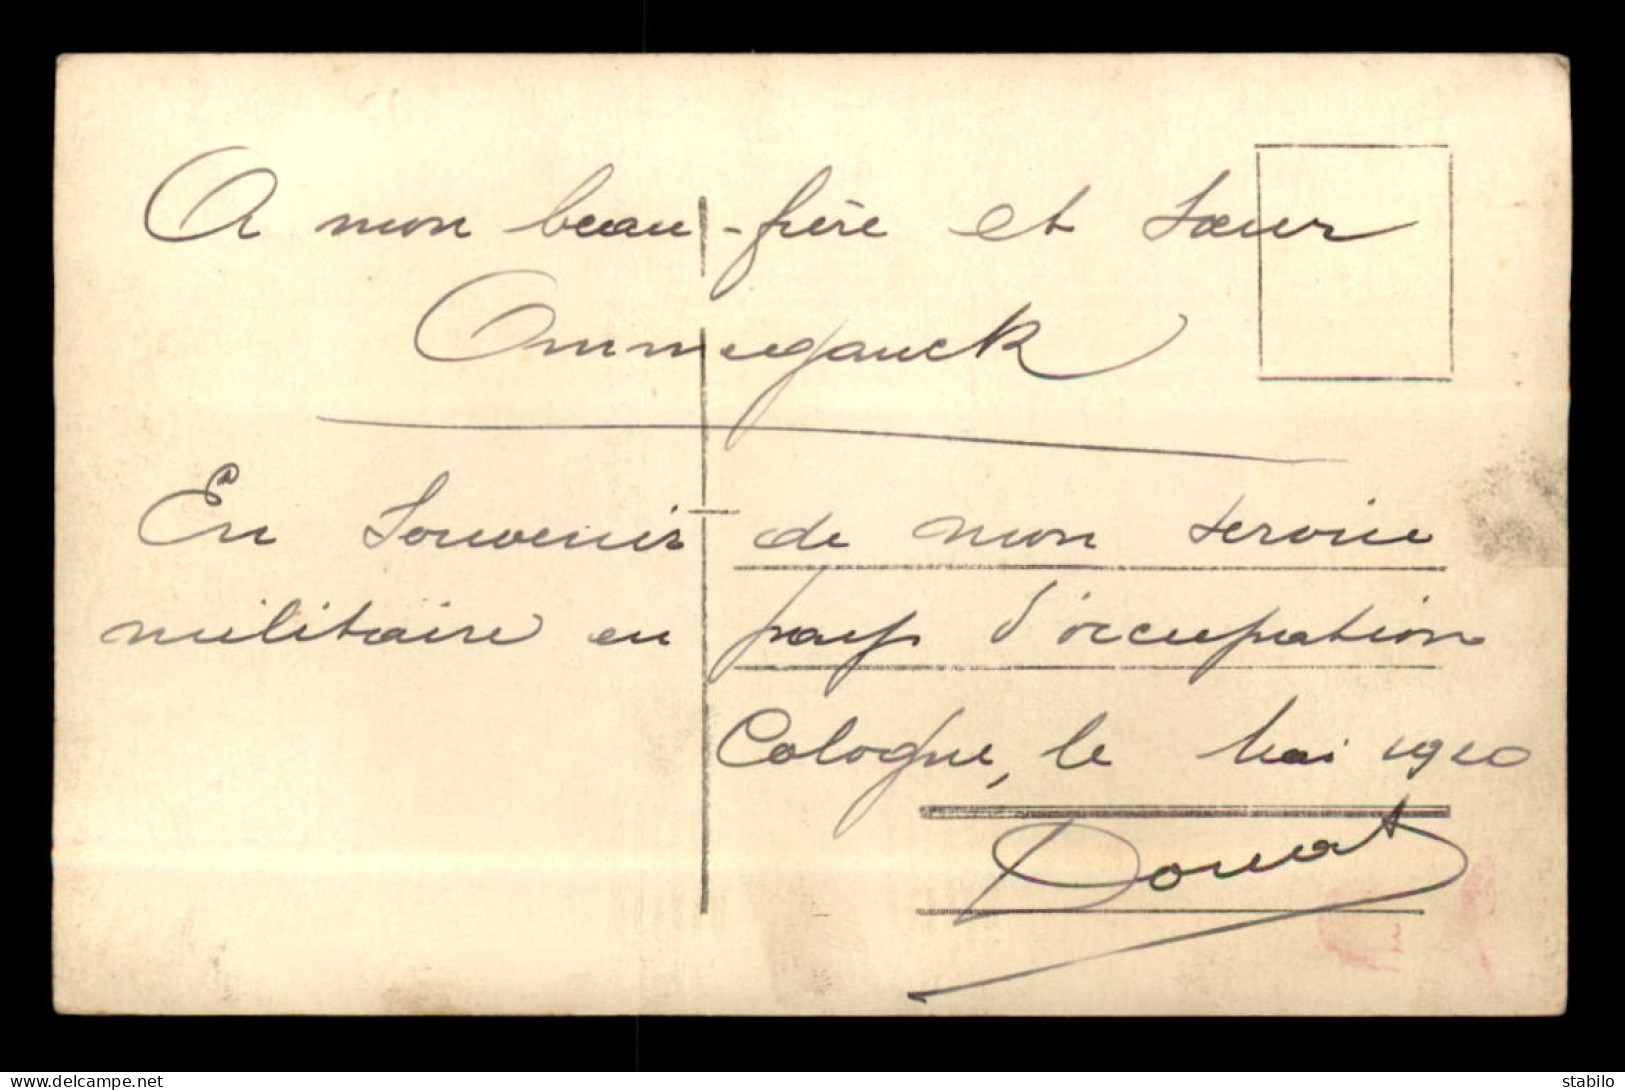 A mon beau-frère et sœur
Ommeganck
En souvenir de mon service
militaire en pays d'occupation
Cologne, le Mai 1920
Donat
www.delcampe.net
stabilo